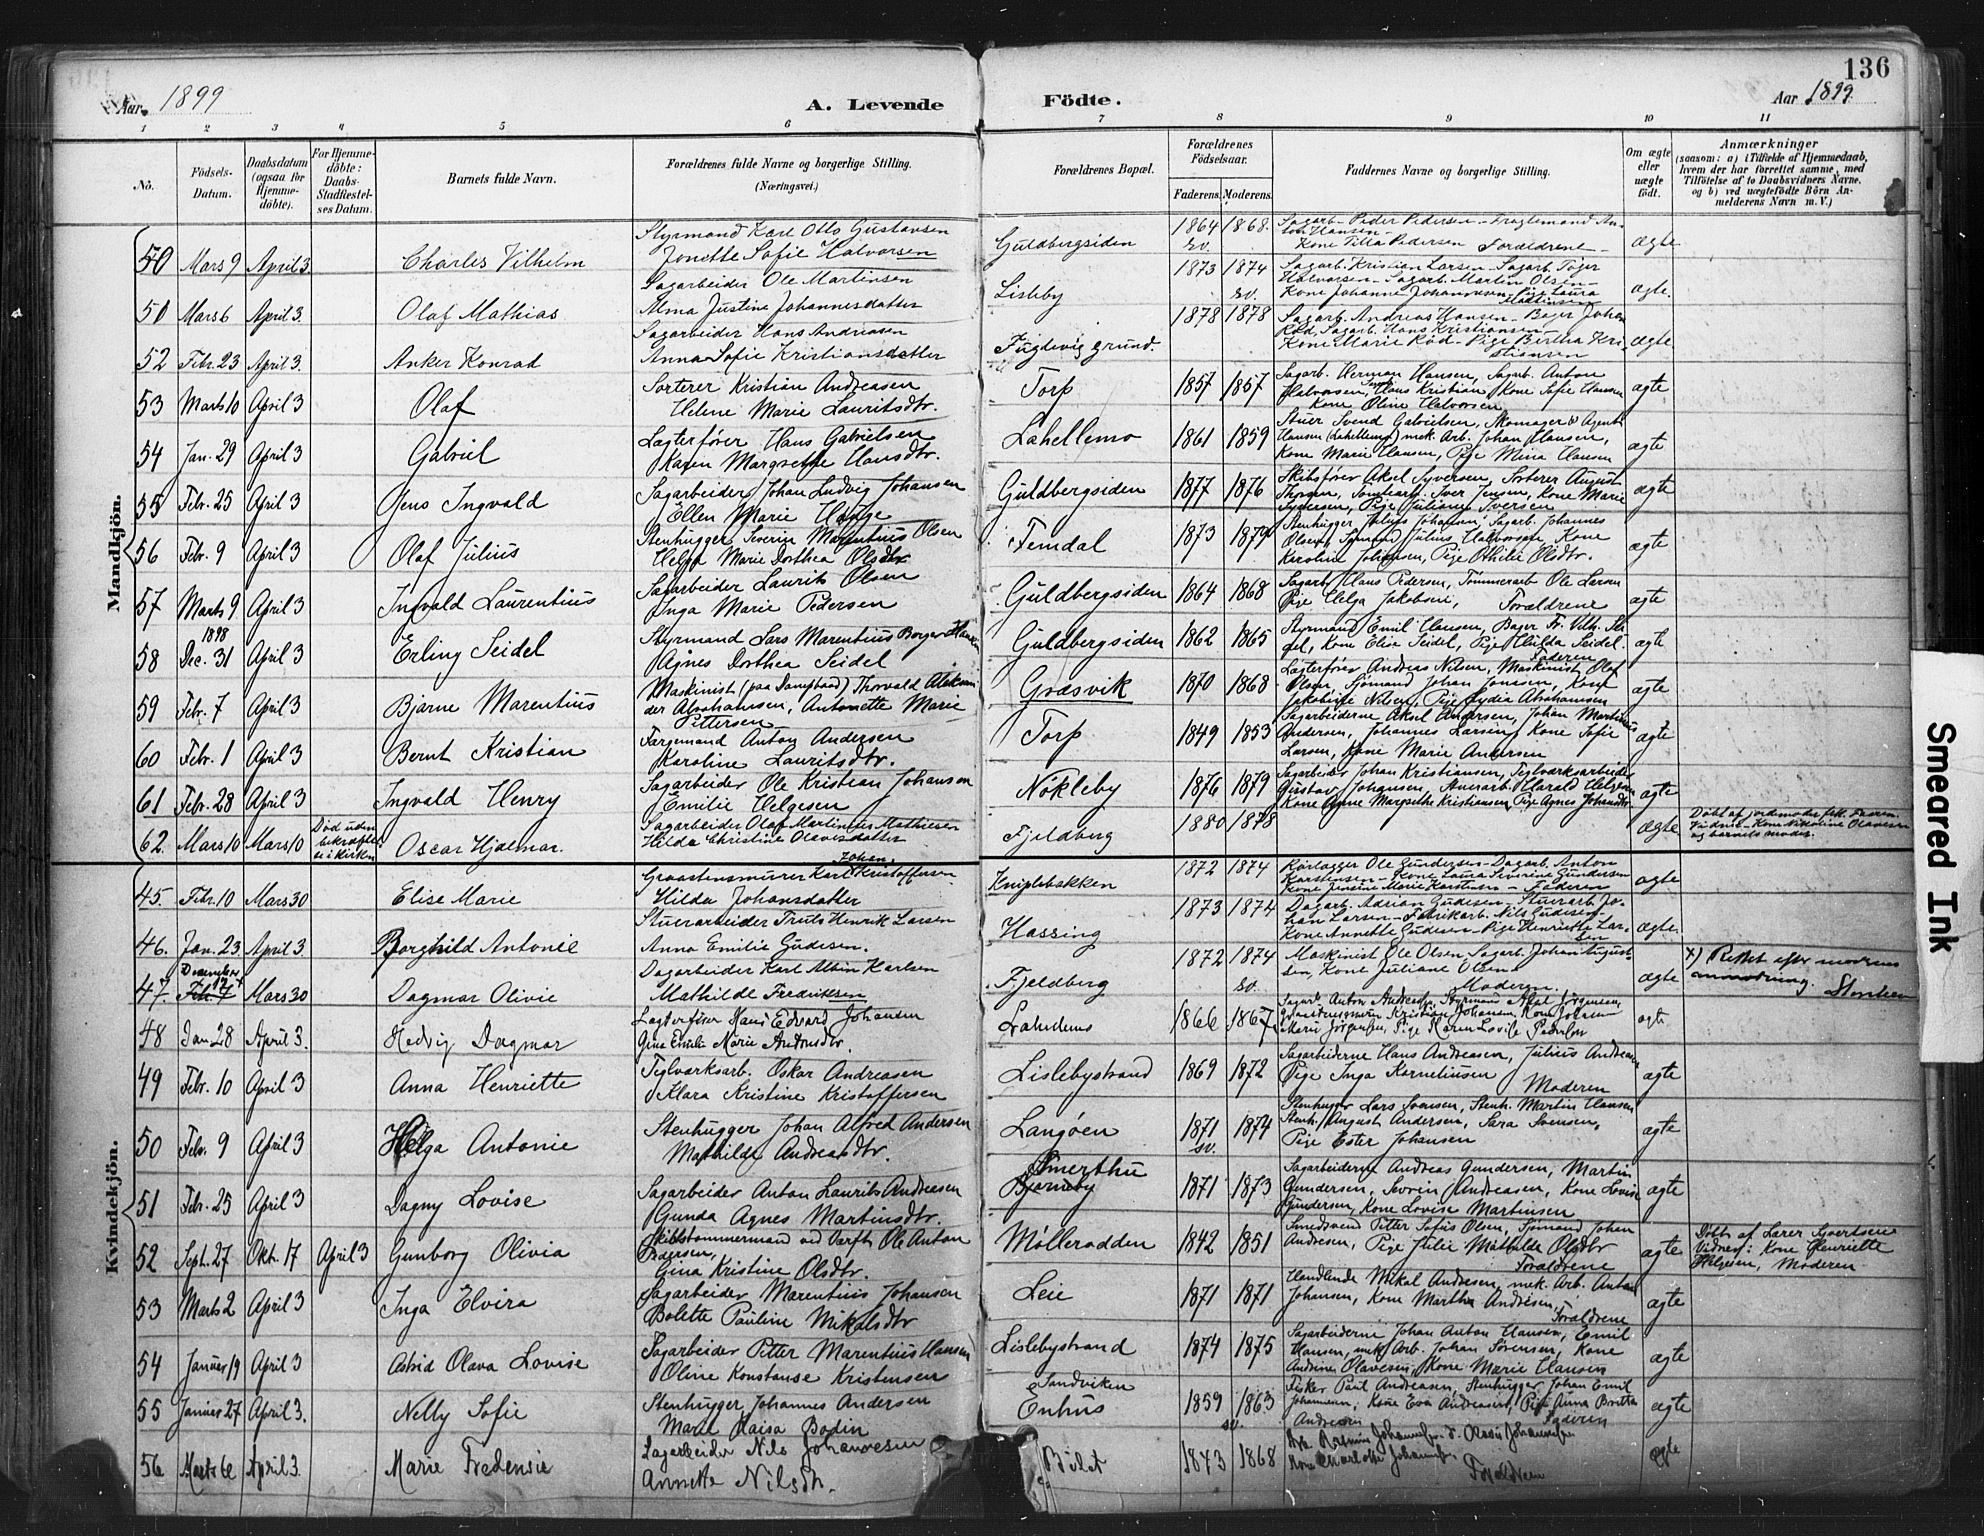 136
Aar 1899
A. Levende
Födte.
Aar 1899
1 2 3 4 5 6 7 8 9 10 11
No.
Födsels-
Datum.
Daabsdatum
(ogsaa for
Hjemme-
döbte).
For Hjemme-
döbte:
Daabs-
Stadfæstel-
ses Datum.
Barnets fulde Navn.
Forældrenes fulde Navne og borgerlige Stilling.
(Næringsvei.)
Forældrenes Bopæl.
Forældrenes
Födselsaar.
Faderens. Moderens.
Faddernes Navne og borgerlige Stilling.
Om ægte
eller
uægte
födt.
Anmærkninger
(saasom: a) i Tilfælde af Hjemmedaab,
hvem der har forrettet samme, med
Tilföielse af to Daabsvidners Navne,
og b) ved uægtefödte Börn An-
melderens Navn m. V.)
Mandkjön.
Styrmand Karl Otto Gustavsen
50 Mars 9 April 3. Charles Vilhelm Jonette Sofie Halvorsen Guldbergsiden 1864 1868. ægte
sv.
Sagarb. Peder Pedersen - Fragtemand An-
ton Hansen -
Kone Tilla Pedersen Forældrene -
Sagarbeider Ole Martinsen
51 Mars 6 April 3. Olaf Mathias Alma Justine Johannesdatter Lisleby 1873 1874 ægte.
sv.
Sagarb. Kristian Larsen - Sagarb. Töger
Halvorsen - Sagarb. Martin Olsen -
Kone Johanne Johannesen - Pige Laura
Martinsen
Sagarbeider Hans Andreasen
52 Febr. 23 April 3. Anker Konrad Anna Sofie Kristiansdatter Fugdevig grund. 1878 1878 ægte
Sagarb. Andreas Hansen - Bager Johan
Röd, Sagarb. Hans Kristiansen -
Kone Marie Röd - Pige Bertha Kri-
stiansen
Sorterer Kristian Andreasen
53 Marts 10 April 3 Olaf Helene Marie Lauritsdtr. Torp 1857 1857 ægte
Sagarb. Herman Hansen, Sagarb. Anton
Halvorsen, Hans Kristian, Kone Sofie Hansen
Kone Oline Halvorsen
Lagterfører Hans Gabrielsen
54 Jan. 29 April 3 Gabriel Karen Margrethe Hansdtr. Lahellemo 1861 1859 ægte
Stuer Svend Gabrielsen, Skomager & Agent
Hansen (Lahellemo) mek. Arb. Johan Hansen,
Kone Marie Hansen, Pige Mina Hansen
Sagarbeider Johan Ludvig Johansen
55 Febr. 25 April 3 Jens Ingvald Ellen Marie Holge Guldbergsiden 1877 1876 ægte
Skibsfør Aksel Syversen, Sorterer August
Thorsen, Tomtearb. Iver Jensen, Kone Marie
Syversen, Pige Juliane Iversen
Stenhugger Severin Marentius Olsen
56 Febr. 9 April 3 Olaf Julius Helga Marie Dorthea Olsdtr Femdal 1873 1879 ægte
Stenhugger Julius Johansen, Sagarb. Johannes
Olsen, Sjømand Julius Halvorsen, Kone
Karoline Johansen, Pige Othilie Olsdtr.
Sagarbeider Laurits Olsen
57 Marts 9 April 3 Ingvald Laurentius Inga Marie Pedersen Guldbergsiden 1864 1868 ægte
Sagarb. Hans Pedersen, Tømmerarb Ole Larsen
Pige Helga Jakobsen, Forældrene
1898
Styrmand Lars Marentius Borger Hansen
58 Dec. 31 April 3 Erling Seidel Agnes Dorthea Seidel Guldbergsiden 1862 1865 ægte
Styrmand Emil Hansen, Bager Fr. Vilh. Sei-
del, Kone Elise Seidel, Pige Hilda Seidel.
Faderen
Maskinist (paa Dampbaad) Thorvald Aleksan
59 Febr. 7 April 3 Bjarne Marentius der Abrahamsen, Antonette Marie
Pettersen
Græsvik 1870 1868 ægte
Lagterfører Andreas Nilsen, Maskinist Olaf
Olsen, Sjømand Johan Jonassen, Kone
Jakobine Nilsen, Pige Lydia Abrahamsen
Færgemand Anton Andersen
60 Febr. 1 April 3 Bernt Kristian Karoline Lauritsdtr. Torp 1849 1853 ægte
Sagarbeiderne Aksel Andersen, Johan Martinius
Andersen, Johannes Larsen, Kone Sofie
Larsen, Kone Marie Andersen
Sagarbeider Ole Kristian Johansen
61 Febr. 28 April 3 Ingvald Henry Emilie Helgesen Nøkleby 1876 1879 ægte
Sagarbeider Johan Kristiansen, Teglværksarbeider
Gustav Johansen, Stuerarb. Harald Helgesen
Kone Anne Margrethe Kristiansen, Pige Agnes Johansdtr
Sagarbeider Olaf Martinius Mathisen
62. Mars 10 Mars 10 Död uden
bekræftel-
se i kirken Oscar Hjalmar. Hilda Christine Olavesdatter Fjeldberg 1880 1878 ægte
Döbt af jordmoder
Vidner - Kone Karoline Olavesen
og barnets moder.
Kvindekjön.
Johan
Graastensmurer Karl Kristoffersen
45. Febr. 10 Mars 30 Elise Marie Hilda Johansdatter Kniplebakken 1872 1874 ægte
Rørlægger Ole Gundersen - Dagarb. Anton
Karstensen - Kone Laura Severine Gundersen
Kone Jensine Marie Karstensen - Faderen
Stuerarbeider Truls Henrik Larsen
46. Jan. 23. April 3. Borghild Antonie Anna Emilie Gudesen. Hassing 1873 1874 ægte.
Dagarb. Adrian Gudesen - Stuerarb. Jo-
han Larsen - Fabrikarb. Nils Gudesen -
Kone Annette Gudesen - Pige Henriette Lar-
sen
December
Dagarbeider Karl Albin Karlsen
47. 17 Febr. 7 Mars 30 Dagmar Olivie Mathilde Fredriksen Fjeldberg 1872 1874 ægte
sv.
Maskinist Ole Olsen - Sagarb. Johan August-
sen, Kone Juliane Olsen
Moderen.
x) Rettet efter moderens
anmodning.
Lagterfører Hans Edvard Johansen
48 Jan 28 April 3. Hedvig Dagmar Gina Emilie Marie Andrsdtr. 1866 1867 ægte
Sagarb. Anton Andreasen, Styrmand Aksel Jørgensen,
Graastensmurer Kristian Johansen, Kone Johanne
Marie Jørgensen, Pige Karen Lovise Pedersen
Teglværksarb. Oskar Andreasen
49 Febr. 10 April 3 Anna Henriette Klara Kristine Kristoffersen Lislebystrand 1869 1872 ægte
Sagarbeiderne Hans Andreasen, Julius Andreasen
Pige Inga Korneliusen Moderen
Stenhugger Johan Alfred Andersen
50 Febr. 9 April 3 Helga Antonie Mathilde Andreasdtr. Langøen 1871 1874 ægte
sv.
Stenhugger Lars Svensen, Stenh. Martin Hansen
Stenh. August Andersen, Sara Svensen,
Pige Ester Johansen
Sagarbeider Anton Laurits Andreasen
51 Febr. 25 April 3 Dagny Lovise Gunda Agnes Martinsdtr. Smerthu
Bjørneby 1871 1873 ægte
Sagarbeiderne Andreas Gundersen, Martin
Gundersen, Severin Andreasen, Kone Lovise
Gundersen, Kone Lovise Martinsen
Skibstømmermand ved Værft Ole Anton
Pedersen,
52 Sept. 27 Okt. 17 April 3 Gunborg Olivia Gina Kristine Olsdtr. Møllerodden 1842 1851 ægte
Smedsvend Petter Sofus Olsen, Sjømand Johan
Andresen, Pige Julie Mathilde Olsdtr
Forældrene
Döbt af Lærer Syvertsen
Vidner: Kone Henriette
Helgesen, Moderen
Sagarbeider Marentius Johansen
53 Marts 2 April 3 Inga Elvira Bolette Pauline Mikalsdtr Leie 1871 1871 ægte
Handlende Mikal Andresen, mek. Arb. Anton
Johansen, Kone Martha Andresen,
Forældrene
Sagarbeider Petter Marentius Hansen
54 Januar 19 April 3 Astrid Olava Lovise Oline Konstanse Kristensen Lislebystrand 1874 1875 ægte
Sagarbeiderne Johan Anton Hansen, Emil
Hansen, mek. Arb. Johan Sørensen, Kone
Andrine Olavesen, Kone Marie Hansen
Stenhugger Johannes Andersen
55 Januar 27 April 3. Nelly Sofie Marie Kaisa Bodin Sandviken
Enhus 1859 1863 ægte
sv.
Fisker Paul Andreasen, Stenhugger Johan Emil
Johannesen, Kone Eva Andreasen, Pige Anna Britta
Andresen Faderen
Sagarbeider Nils Johannesen
56 Marts 6 April 3. Marie Fredensie Annette Nilsdtr. Bilet 1843 1868 ægte
Kone Charlotte Johannes.
Forældrene
Smeared Ink